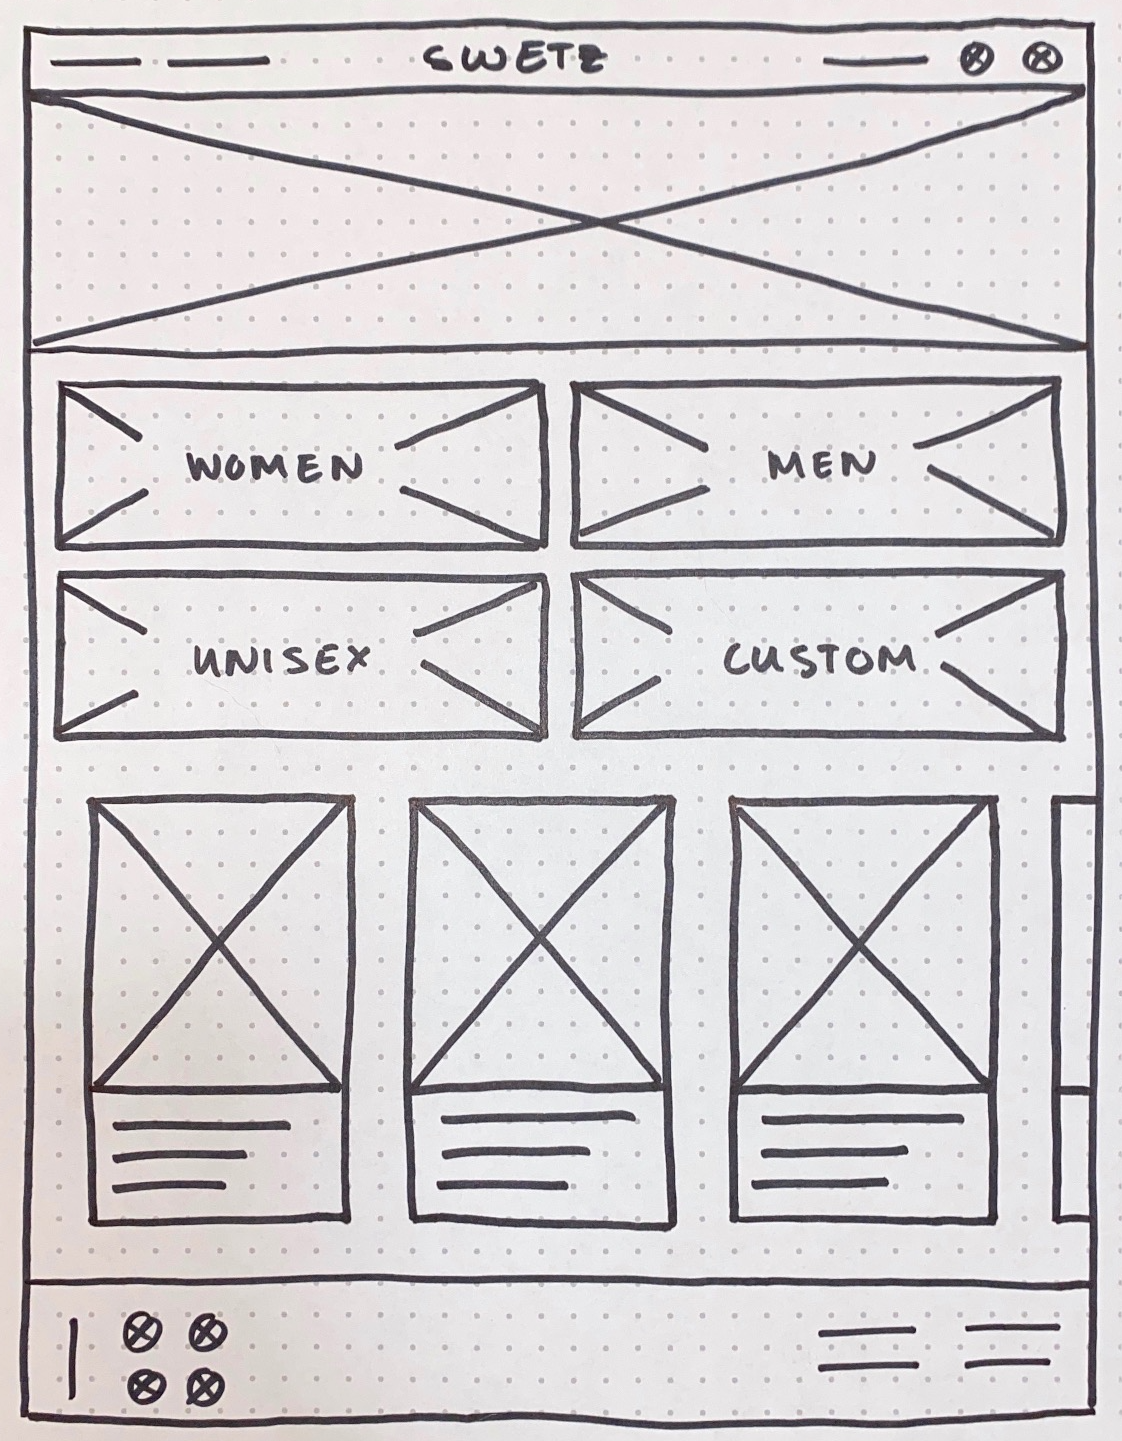 SWETZ
WOMEN
MEN
UNISEX
CUSTOM